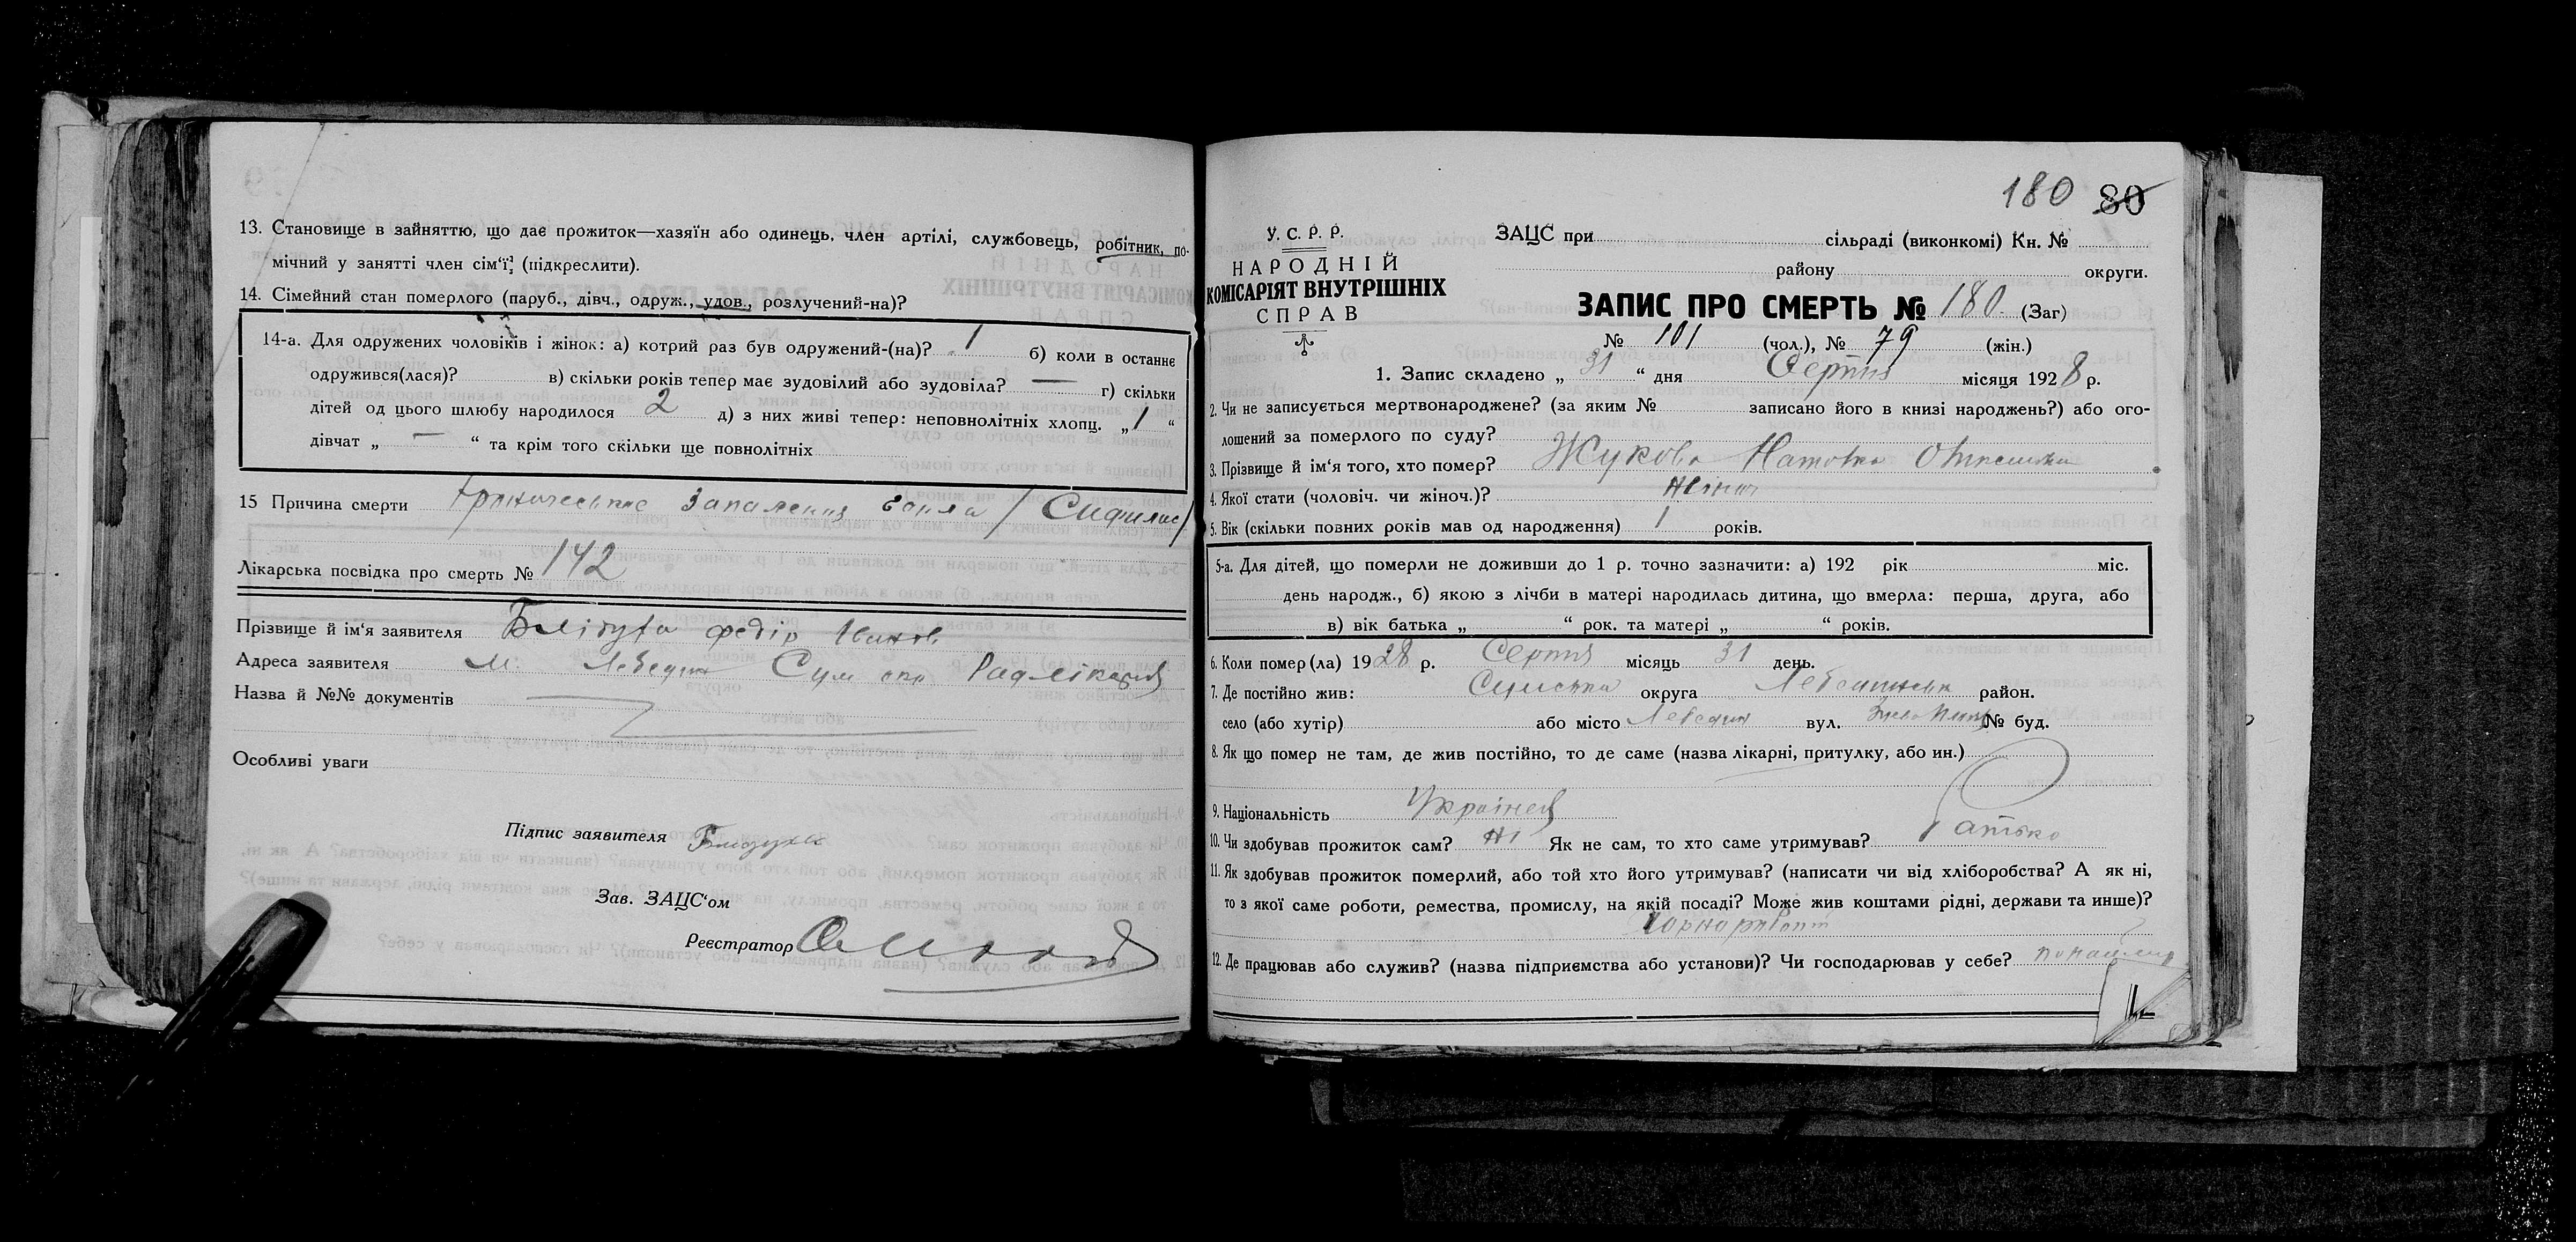 13. Становище в зайняттю, що дає прожиток—хазяїн або одинець, член артілі, службовець, робітник, по-
мічний у занятті член сім'ї, (підкреслити).
14. Сімейний стан померлого (паруб., дівч., одруж., удов., розлучений-на)?
14-а. Для одружених чоловіків і жінок: а) котрий раз був одружений-(на)? 1 б) коли в останнє
одружився(лася)? в) скільки років тепер має зудовілий або зудовіла? — г) скільки
дітей од цього шлюбу народилося 2 д) з них живі тепер: неповнолітніх хлопц. „ 1 “
дівчат „ — “ та крім того скільки ще повнолітніх
15 Причина смерти запалення /Сифилис/
Лікарська посвідка про смерть № 142
Прізвище й ім'я заявителя Федір Іванов
Адреса заявителя м. Лебедин Сум
Назва й №№ документів
Особливі уваги
Підпис заявителя
Зав. ЗАЦС'ом
Реєстратор
180 80
У. С. Р. Р.
НАРОДНІЙ
КОМІСАРІЯТ ВНУТРІШНІХ
СПРАВ
ЗАЦС при сільраді (виконкомі) Кн. №
району округи.
ЗАПИС ПРО СМЕРТЬ № 180 (Заг)
№ 101 (чол.), № 79 (жін.)
1. Запис складено „ 31 “ дня Серпня місяця 1928 р.
2. Чи не записується мертвонароджене? (за яким № записано його в книзі народжень?) або ого-
лошений за померлого по суду?
3. Прізвище й ім'я того, хто помер? Жукова
4. Якої стати (чоловіч. чи жіноч.)? жіноч
5. Вік (скільки повних років мав од народження) 1 років.
5-а. Для дітей, що померли не доживши до 1 р. точно зазначити: а) 192 рік міс.
день народж., б) якою з лічби в матері народилась дитина, що вмерла: перша, друга, або
в) вік батька „ “ рок. та матері „ “ років.
6. Коли помер(ла) 1928 р. Серпня місяць 31 день.
7. Де постійно жив: Сумська округа Лебединськ район.
село (або хутір) або місто Лебедин вул. № буд.
8. Як що помер не там, де жив постійно, то де саме (назва лікарні, притулку, або ин.)
9. Національність Українец
10. Чи здобував прожиток сам? ні Як не сам, то хто саме утримував? Батько
11. Як здобував прожиток померлий, або той хто його утримував? (написати чи від хліборобства? А як ні,
то з якої саме роботи, ремества, промислу, на якій посаді? Може жив коштами рідні, держави та инше)?
12. Де працював або служив? (назва підприємства або установи)? Чи господарював у себе?